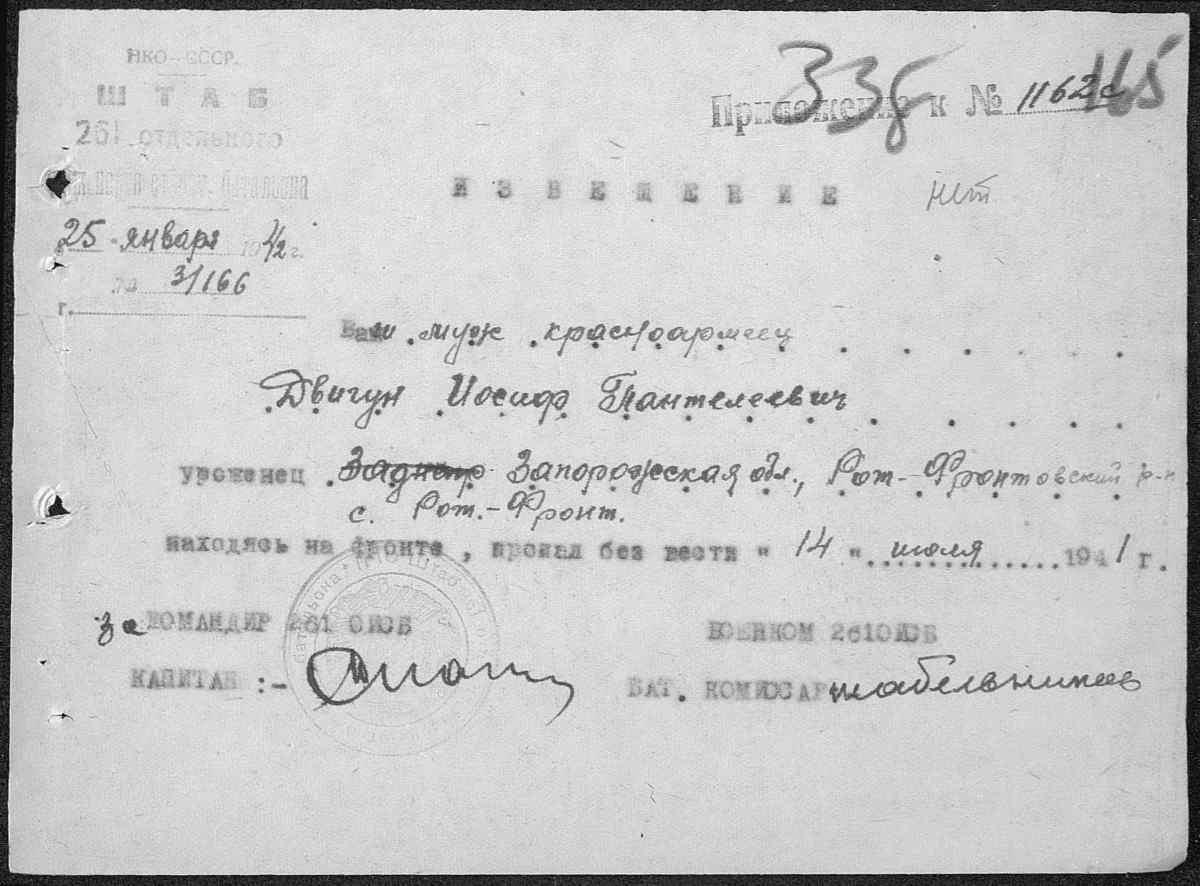 НКО-СССР.
ШТАБ
261 отдельного
батальона
25 января 1942 г.
№ 3/166
г.
Приложение к № 1162с
33б
115
ИЗВЕЩЕНИЕ
нет
Ваш муж красноармеец
Двигун Иосиф Пантелеевич
уроженец Запорожская обл., Рот-Фронтовский р-н
с. Рот.-Фронт.
находясь на фронте, пропал без вести "14" июля 1941 г.
за КОМАНДИР 261 ОИСБ
ВОЕНКОМ 261 ОИСБ
КАПИТАН :-
БАТ. КОМИССАР